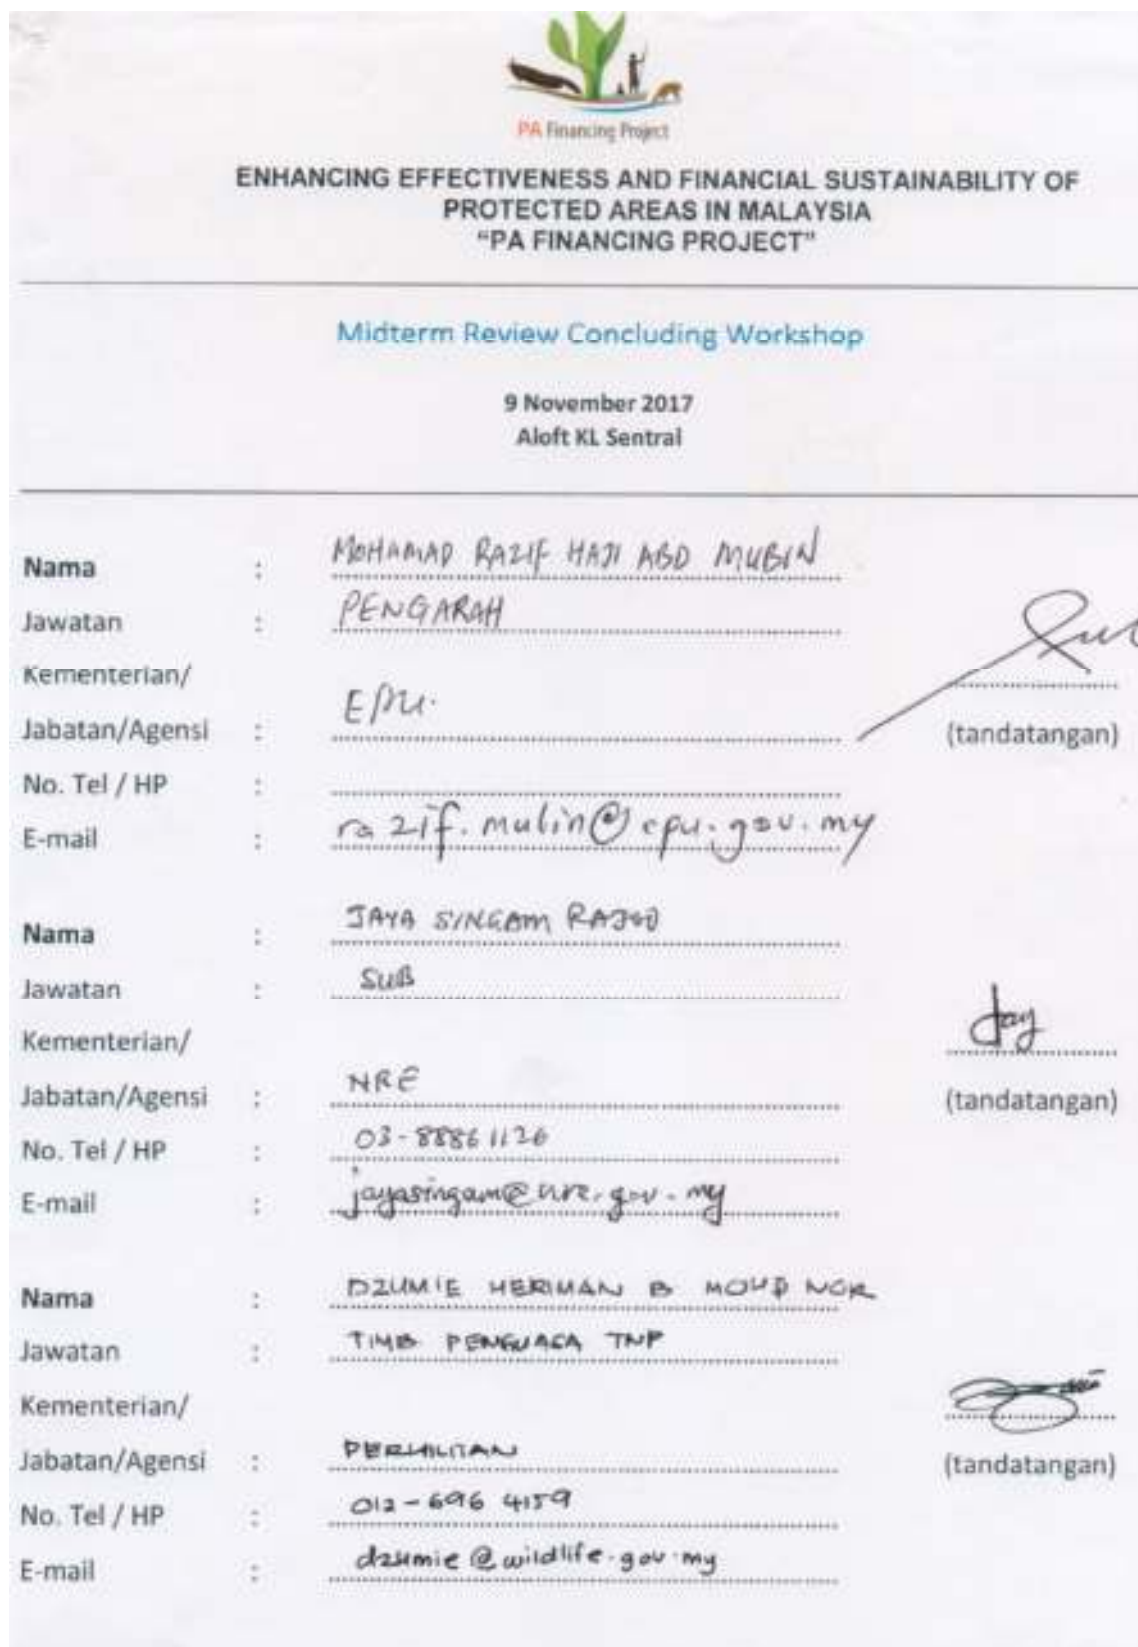 PA Financing Project
ENHANCING EFFECTIVENESS AND FINANCIAL SUSTAINABILITY OF
PROTECTED AREAS IN MALAYSIA
“PA FINANCING PROJECT”
Midterm Review Concluding Workshop
9 November 2017
Aloft KL Sentral
Nama : MOHAMAD RAZIF HAJI ABD MUBIN
Jawatan : PENGARAH
Kementerian/
Jabatan/Agensi : EPU.
(tandatangan)
No. Tel / HP :
E-mail : razif.mubin@epu.gov.my
Nama : JAYA SINGAM RAJOO
Jawatan : SUB
Kementerian/
Jabatan/Agensi : NRE
(tandatangan)
No. Tel / HP : 03-88861126
E-mail : jayasingam@nre.gov.my
Nama : DZUMIE HERIMAN B MOHD NOR
Jawatan : TIMB PENGUASA TNP
Kementerian/
Jabatan/Agensi : PERHILITAN
(tandatangan)
No. Tel / HP : 012-696 4159
E-mail : dzumie@wildlife.gov.my